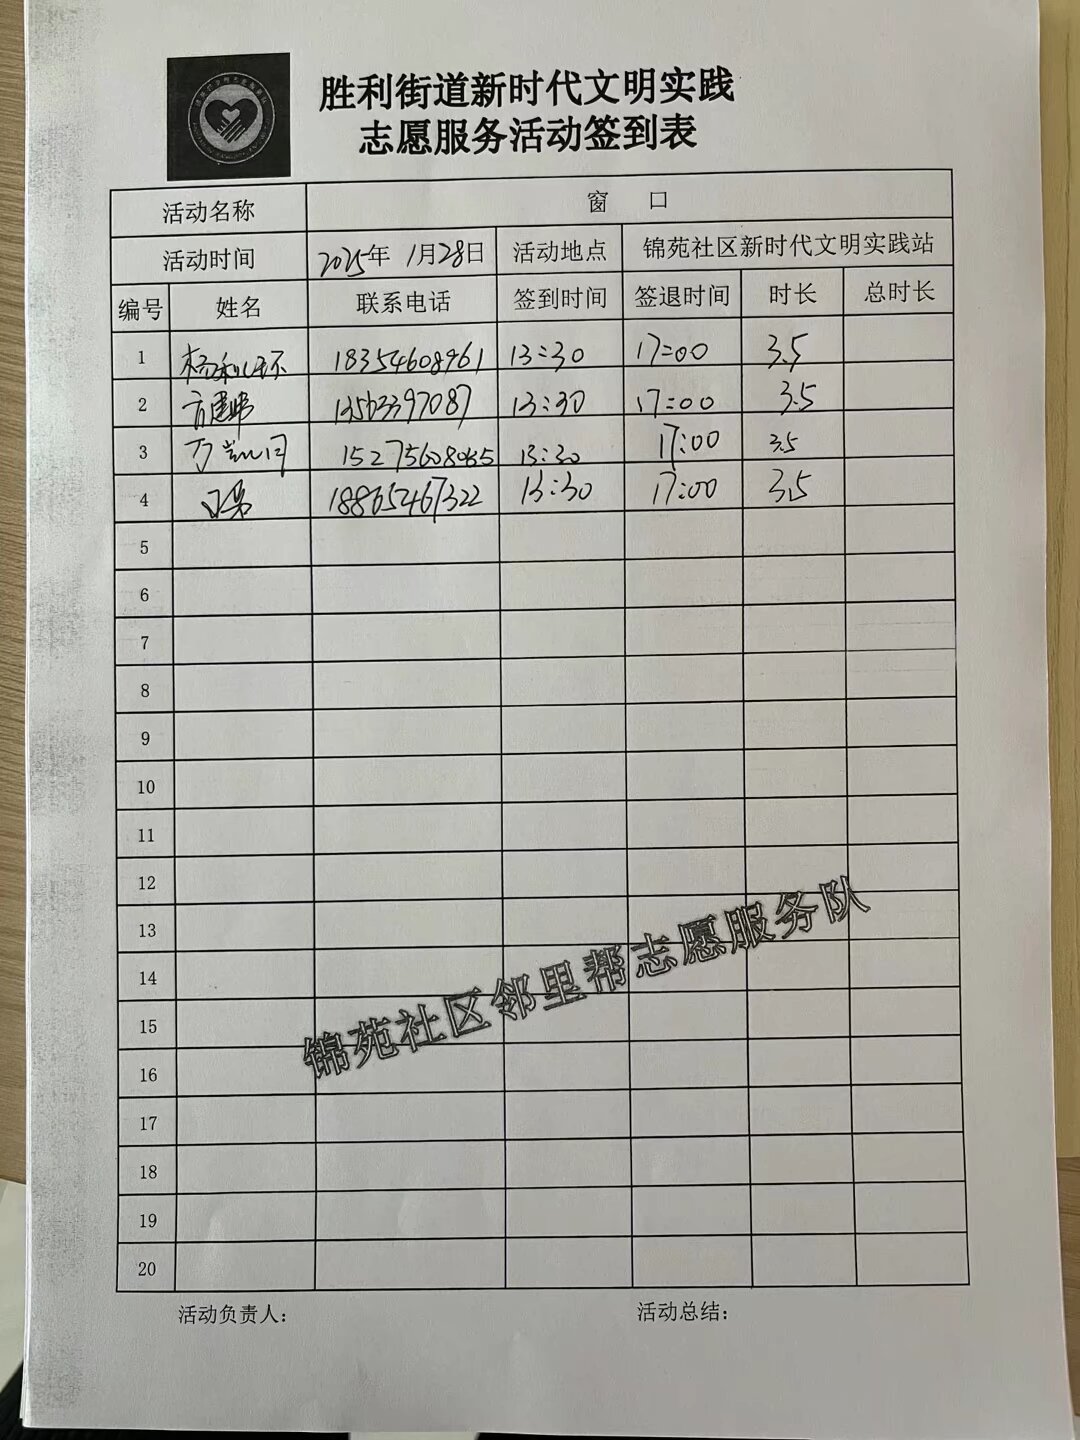 胜利街道新时代文明实践
志愿服务活动签到表
活动名称 窗 口
活动时间 2025年 1月28日 活动地点 锦苑社区新时代文明实践站
编号 姓名 联系电话 签到时间 签退时间 时长 总时长
1 18354608961 13:30 17:00 3.5
2 13563397087 13:30 17:00 3.5
3 15275608065 13:30 17:00 3.5
4 18865467322 13:30 17:00 3.5
5
6
7
8
9
10
11
12
13
14
15
16
17
18
19
20
锦苑社区邻里帮志愿服务队
活动负责人: 活动总结: